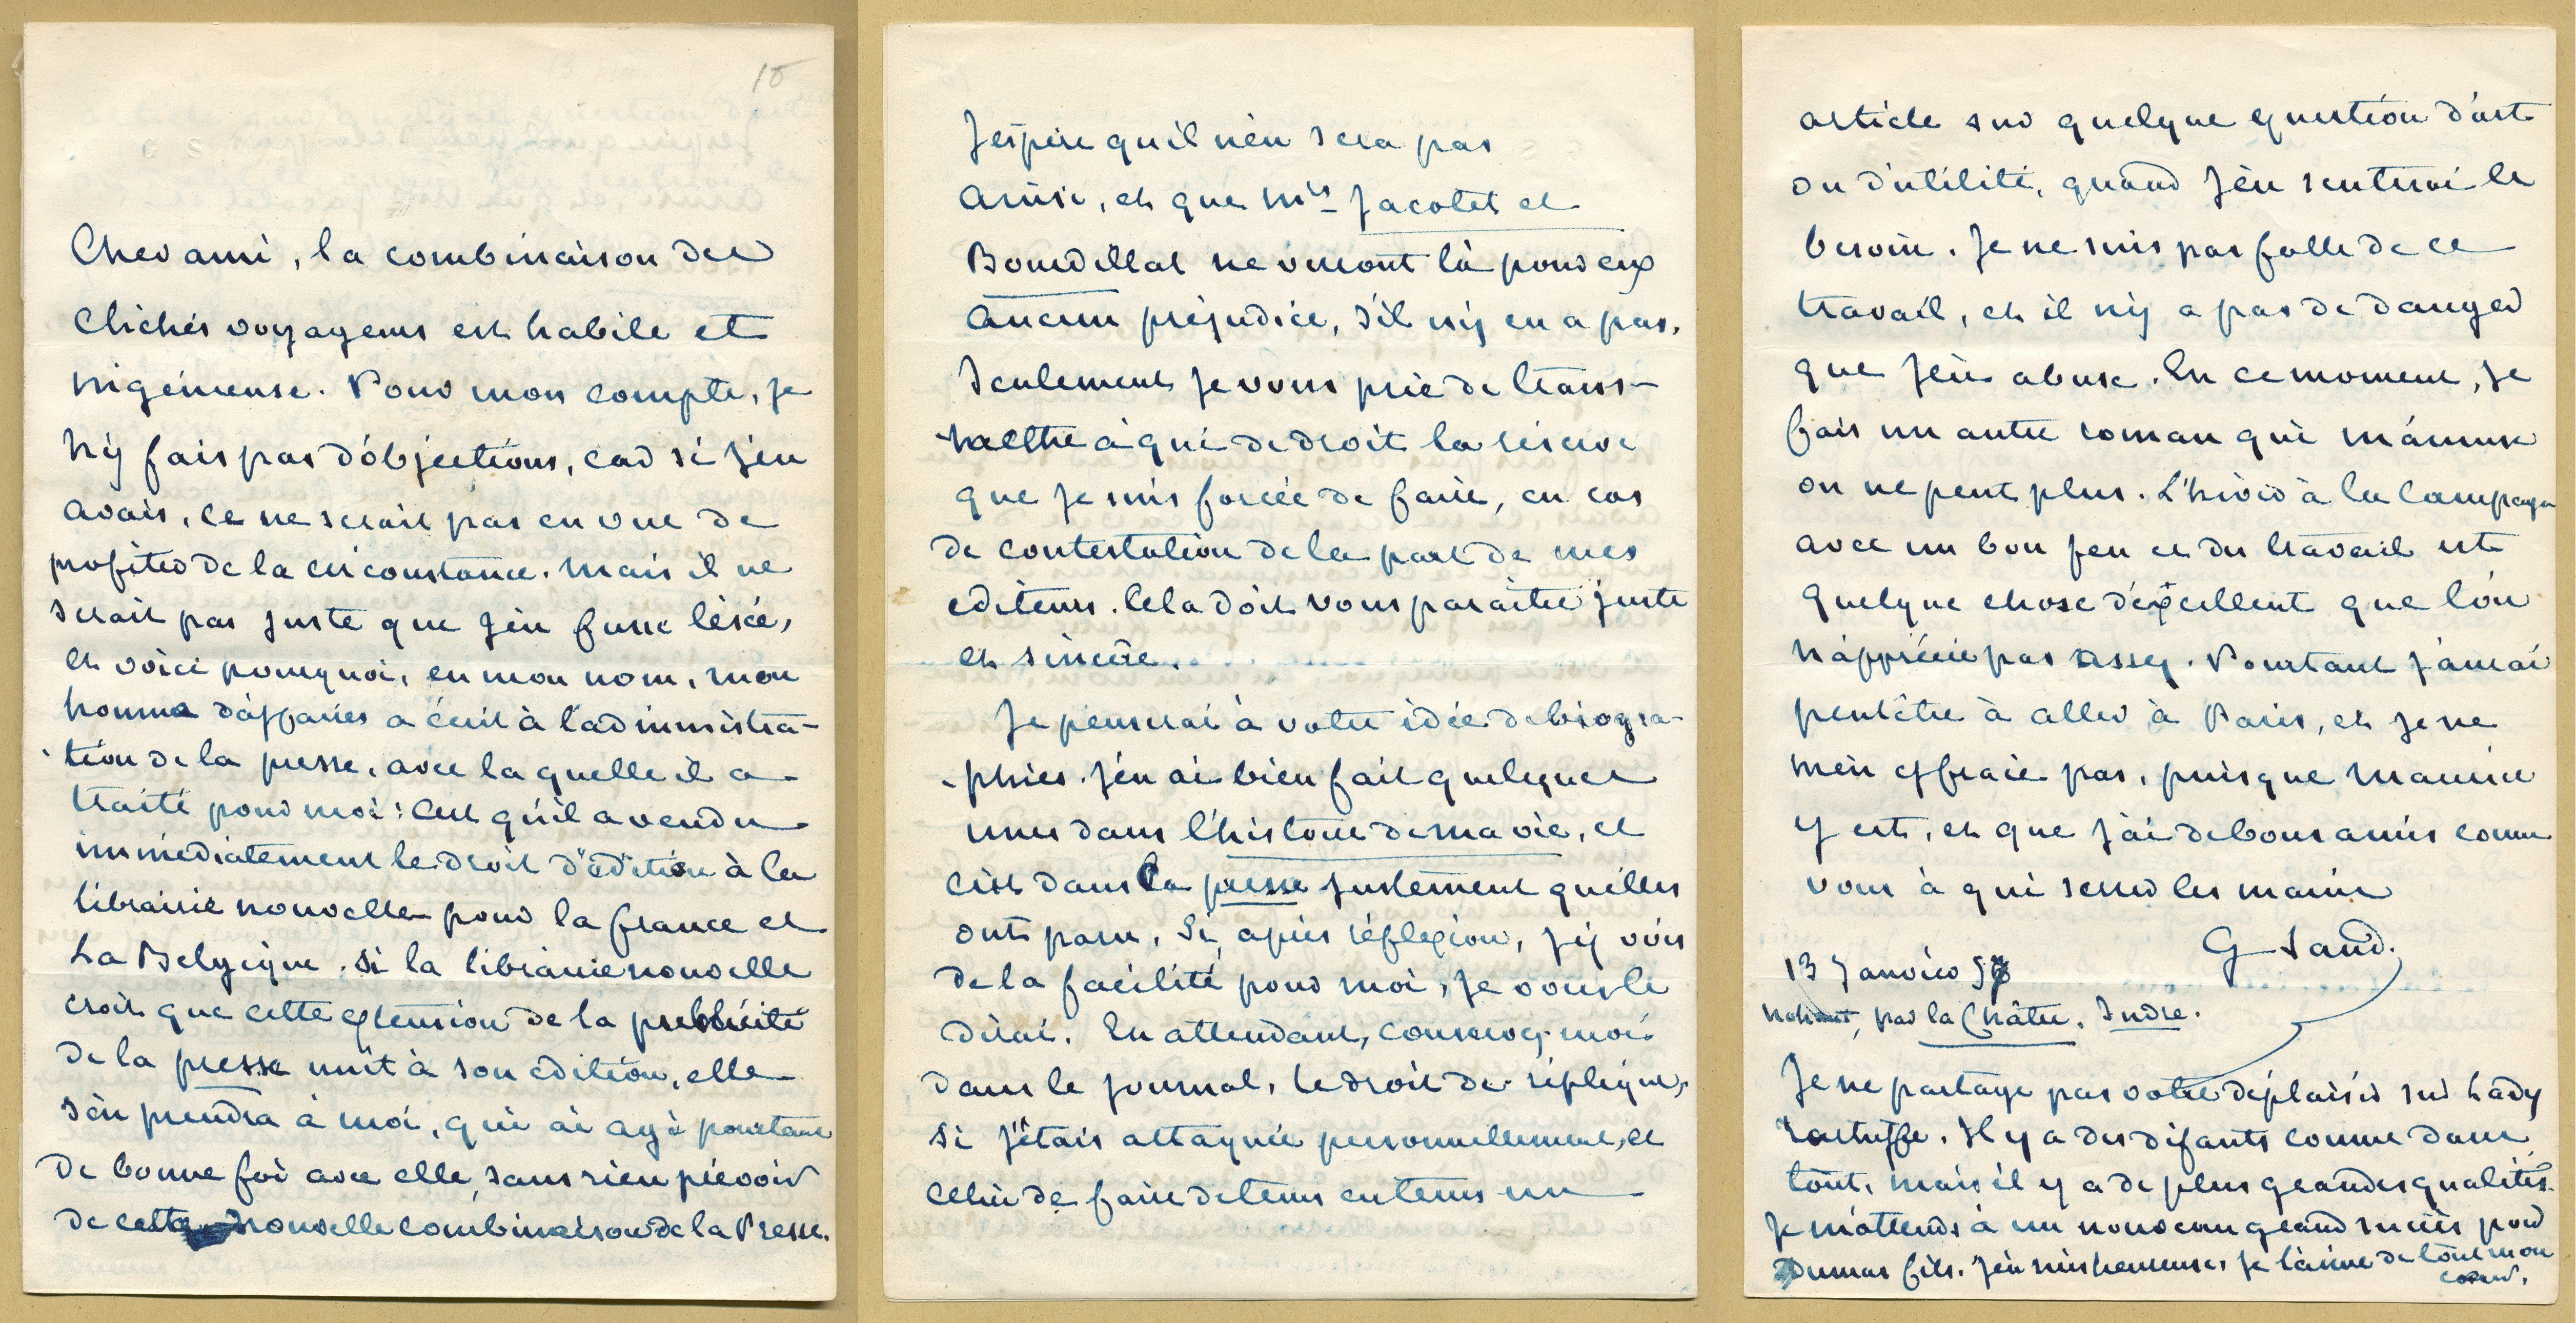 15
C S
Cher ami, la combinaison des
clichés voyageurs est habile et
ingénieuse. Pour mon compte, je
n'y fais pas d'objections, car si j'en
avais, ce ne serait pas en vue de
profiter de la circonstance. Mais il ne
serait pas juste que j'en fusse lésée,
et voici pourquoi, en mon nom, mon
homme d'affaires a écrit à l'administra-
-tion de la presse, avec laquelle il a
traité pour moi : c'est qu'il a vendu
immédiatement le droit d'édition à la
librairie nouvelle pour la france et
La Belgique. Si la librairie nouvelle
croit que cette extension de la publicité
de la presse nuit à son édition, elle
s'en prendra à moi, qui ai agi pourtant
de bonne foi avec elle, sans rien prévoir
de cette nouvelle combinaison de la Presse.
J'espère qu'il n'en sera pas
ainsi, et que Mrs Jacotet et
Bourdillat ne verront là pour eux
aucun préjudice, s'il n'y en a pas.
Seulement je vous prie de trans-
-mettre à qui de droit la réserve
que je suis forcée de faire, en cas
de contestation de la part de mes
éditeurs. Cela doit vous paraître juste
et sincère.
Je penserai à votre idée de biogra-
-phies. J'en ai bien fait quelques
unes dans l'histoire de ma vie, et
c'est dans la presse justement qu'elles
ont paru. Si, après réflexion, j'y vois
de la facilité pour moi, je vous le
dirai. En attendant, conservez-moi
dans le journal, le droit de réplique,
si j'étais attaquée personnellement, et
celui de faire de tems en tems un
article sur quelque question d'art
ou d'utilité, quand j'en sentirai le
besoin. Je ne suis pas folle de ce
travail, et il n'y a pas de danger
que j'en abuse. En ce moment, je
fais un autre roman qui m'amuse
on ne peut plus. L'hiver à la campagne
avec un bon feu et du travail est
quelque chose d'excellent que l'on
n'apprécie pas assez. Pourtant j'aurai
peutêtre à aller à Paris, et je ne
m'en effraie pas, puisque Maurice
y est, et que j'ai de bons amis comme
vous à qui serrer les mains
G Sand.
13 Janvier 57
Nohant, par la Châtre. Indre.
Je ne partage pas votre déplaisir sur Lady
Tartuffe. Il y a des défauts comme dans
tout, mais il y a de plus grandes qualités.
Je m'attends à un nouveau grand succès pour
Dumas fils. J'en suis heureuse, je l'aime de tout mon
cœur.